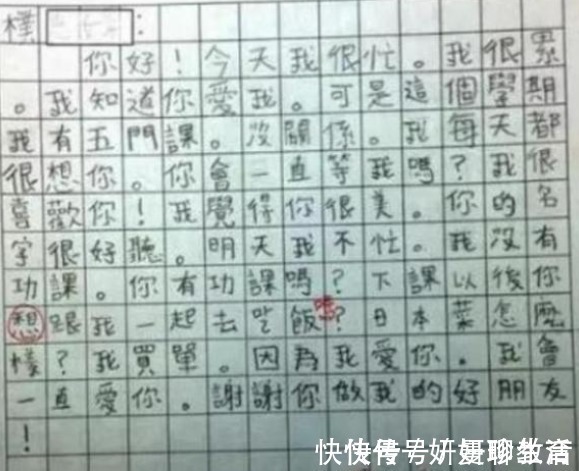 樸：
你好！今天我很忙。我很累
。我知道你愛我。可是這個學期
我有五門課。沒關係。我每天都
很想你。你會一直等我嗎？我很
喜歡你！我覺得你很美。你的名
字很好聽。明天我不忙。我沒有
功課。你有功課嗎？下課以後你
想跟我一起去吃飯嗎？日本菜怎麼
樣？我買單。因為我愛你。我會
一直愛你。謝謝你做我的好朋友
！